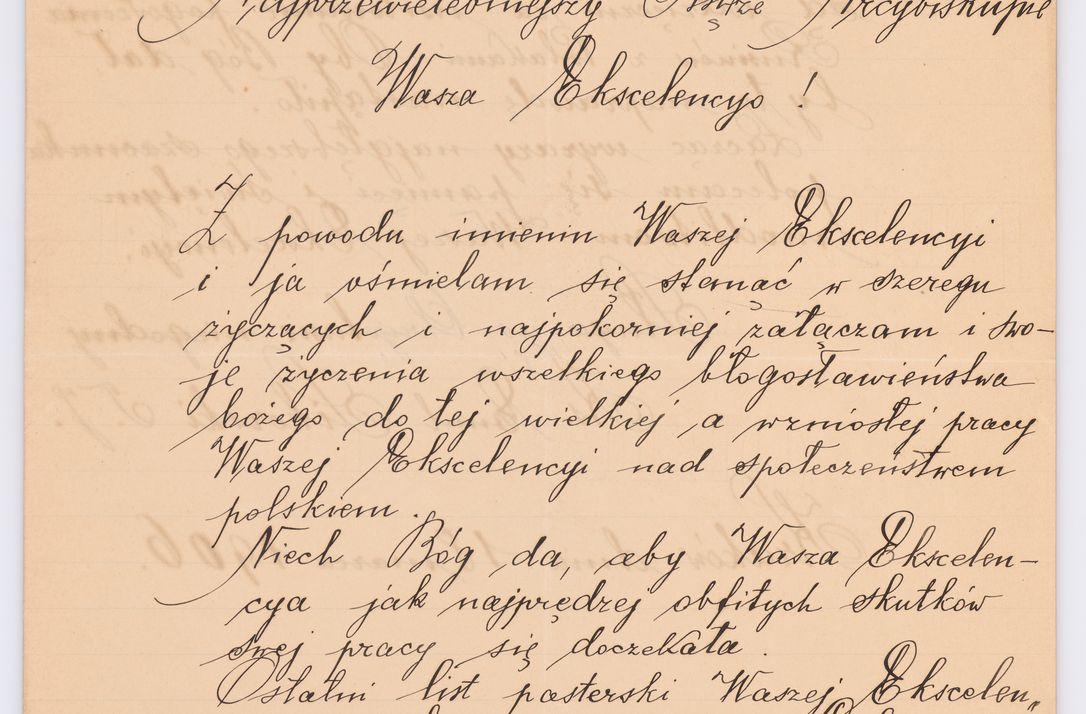 Najprzewielebniejszy Księże Arcybiskupie
Wasza Ekscelencyo !
Z powodu imienin Waszej Ekscelencyi
i ja ośmielam się stanąć w szeregu
życzących i najpokorniej załączam i swo-
je życzenia wszelkiego błogosławieństwa
bożego do tej wielkiej a wzniosłej pracy
Waszej Ekscelencyi nad społeczeństwem
polskiem.
Niech Bóg da, aby Wasza Ekscelen-
cya jak najprędzej obfitych skutków
swej pracy się doczekała.
Ostatni list pasterski Waszej Ekscelen„